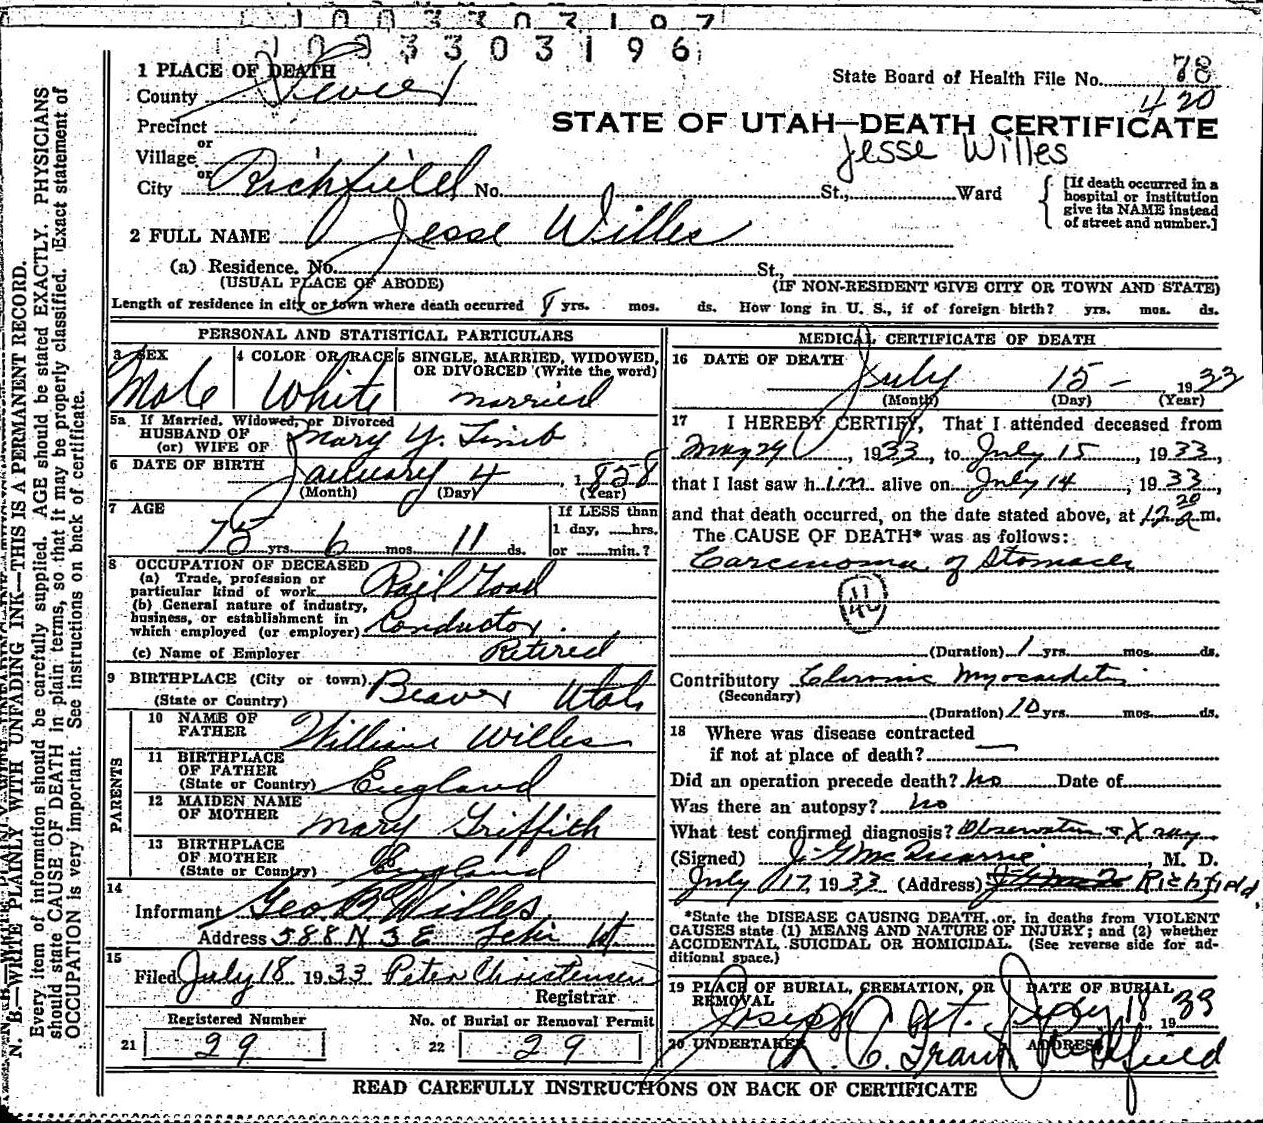 1003303197
1003303196
1 PLACE OF DEATH
County Sevier
State Board of Health File No. 78
420
Precinct
STATE OF UTAH—DEATH CERTIFICATE
Jesse Willes
or
Village
or
City Richfield No. St., Ward
[If death occurred in a hospital or institution give its NAME instead of street and number.]
2 FULL NAME Jesse Willes
(a) Residence. No. St.,
(USUAL PLACE OF ABODE) (IF NON-RESIDENT GIVE CITY OR TOWN AND STATE)
Length of residence in city or town where death occurred 8 yrs. mos. ds. How long in U. S., if of foreign birth? yrs. mos. ds.
PERSONAL AND STATISTICAL PARTICULARS
3 SEX 4 COLOR OR RACE 5 SINGLE, MARRIED, WIDOWED,
OR DIVORCED (Write the word)
Male White married
5a If Married, Widowed, or Divorced
HUSBAND OF
(or) WIFE OF Mary Y.
6 DATE OF BIRTH January 4, 1858
(Month) (Day) (Year)
7 AGE
75 yrs. 6 mos. 11 ds.
If LESS than
1 day, hrs.
or min.?
8 OCCUPATION OF DECEASED
(a) Trade, profession or
particular kind of work Rail Road
(b) General nature of industry,
business, or establishment in
which employed (or employer) Conductor
(c) Name of Employer Retired
9 BIRTHPLACE (City or town) Beaver Utah
(State or Country)
PARENTS
10 NAME OF
FATHER William Willes
11 BIRTHPLACE
OF FATHER
(State or Country) England
12 MAIDEN NAME
OF MOTHER Mary Griffith
13 BIRTHPLACE
OF MOTHER
(State or Country) England
14
Informant Geo B Willes
Address 588 N 3 E Lehi Ut.
15
Filed July 18 1933 Peter Christensen
Registrar
Registered Number No. of Burial or Removal Permit
21 29 22 29
MEDICAL CERTIFICATE OF DEATH
16 DATE OF DEATH
July 15 - 1933
(Month) (Day) (Year)
17 I HEREBY CERTIFY, That I attended deceased from
May 24, 1933, to July 15, 1933,
that I last saw him alive on July 14, 1933,
and that death occurred, on the date stated above, at 12 20 a m.
The CAUSE OF DEATH* was as follows:
Carcinoma of Stomach
(Duration) 1 yrs. mos. ds.
Contributory Chronic Myocarditis
(Secondary)
(Duration) 10 yrs. mos. ds.
18 Where was disease contracted
if not at place of death?
Did an operation precede death? no Date of
Was there an autopsy? no
What test confirmed diagnosis? Observation & X ray
(Signed) J. G. McQuarrie, M. D.
July 17, 1933 (Address) Richfield,
*State the DISEASE CAUSING DEATH, or, in deaths from VIOLENT
CAUSES state (1) MEANS AND NATURE OF INJURY; and (2) whether
ACCIDENTAL, SUICIDAL OR HOMICIDAL. (See reverse side for ad-
ditional space.)
19 PLACE OF BURIAL, CREMATION, OR DATE OF BURIAL
REMOVAL
Joseph Ut. July 18 1933
20 UNDERTAKER ADDRESS
Richfield
READ CAREFULLY INSTRUCTIONS ON BACK OF CERTIFICATE
N. B.—WRITE PLAINLY WITH UNFADING INK—THIS IS A PERMANENT RECORD.
Every item of information should be carefully supplied. AGE should be stated EXACTLY. PHYSICIANS
should state CAUSE OF DEATH in plain terms, so that it may be properly classified. Exact statement of
OCCUPATION is very important. See instructions on back of certificate.